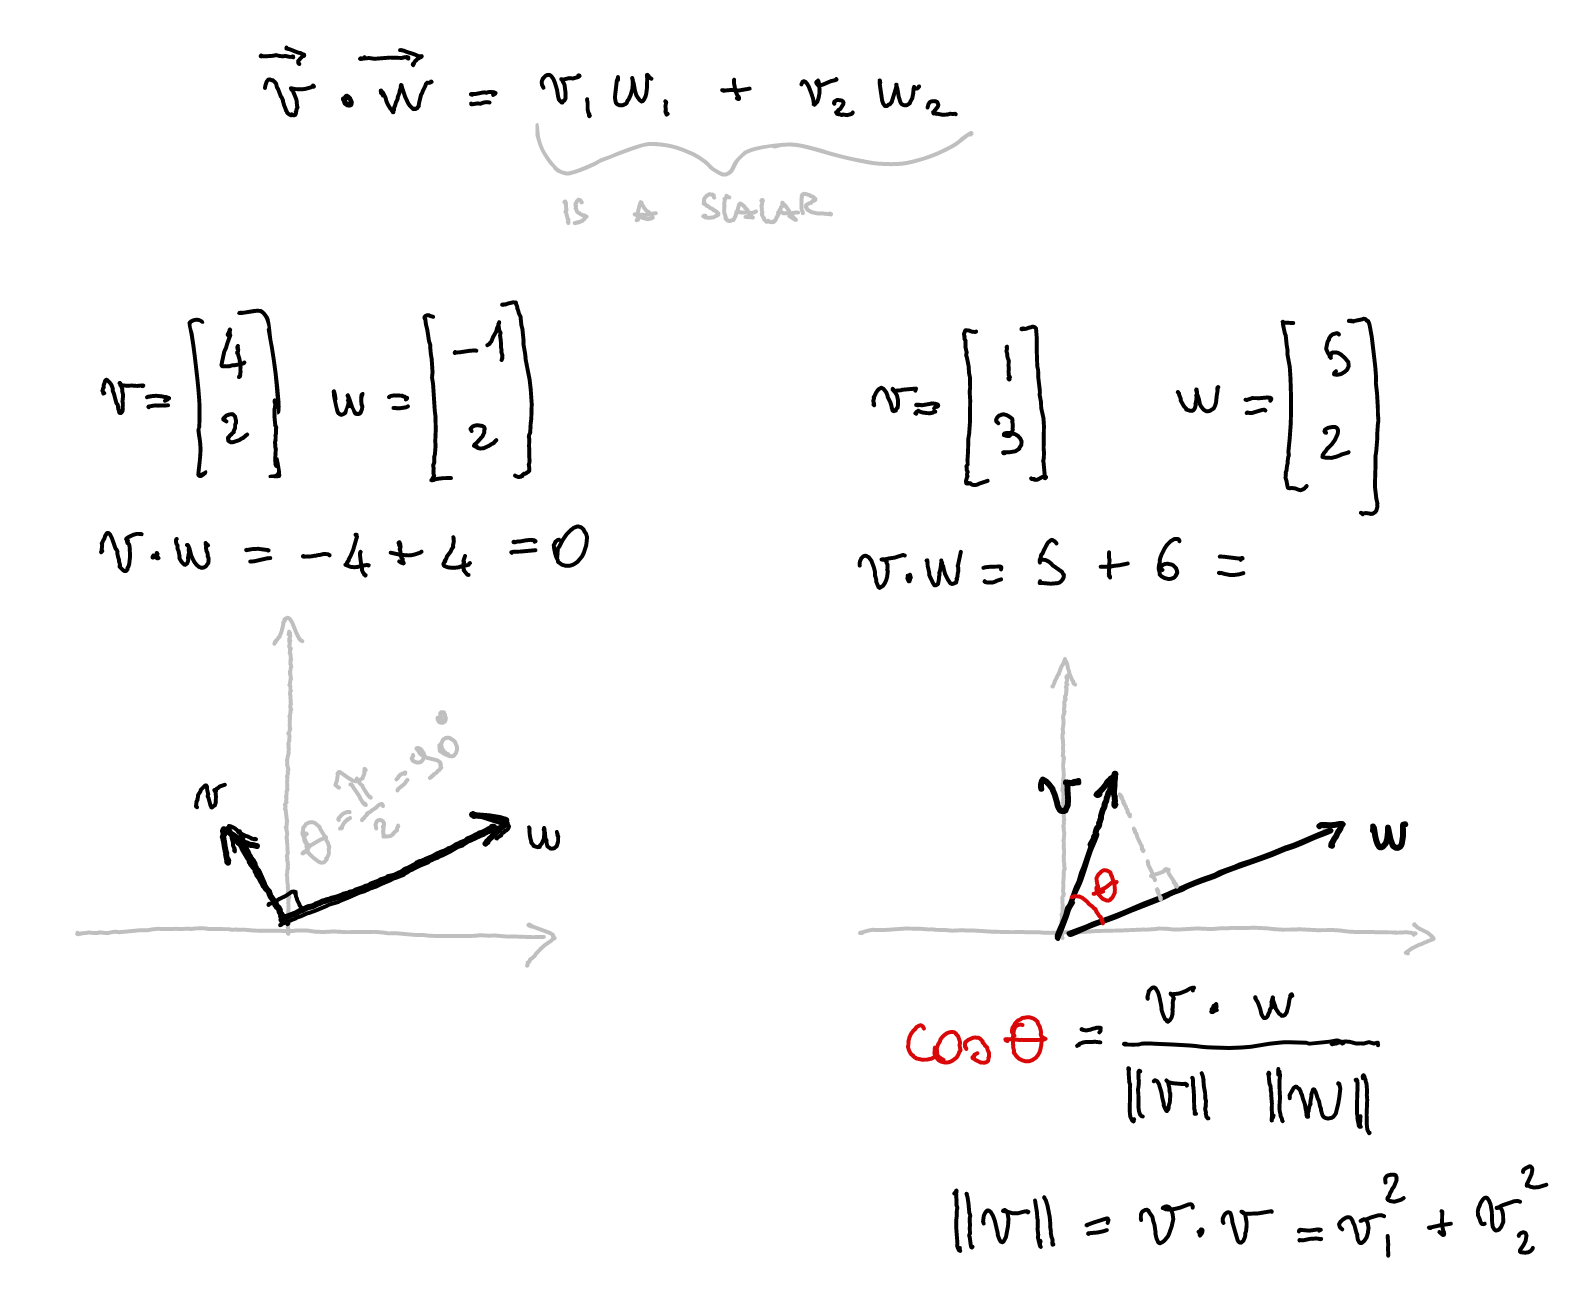 v⃗ · w⃗ = v₁ w₁ + v₂ w₂
IS A SCALAR
v = [4 2] w = [-1 2]
v · w = -4 + 4 = 0
v
w
θ = π/2 = 90°
v = [1 3] w = [5 2]
v · w = 5 + 6 =
v
w
θ
cos θ = v · w / ||v|| ||w||
||v|| = v · v = v₁² + v₂²